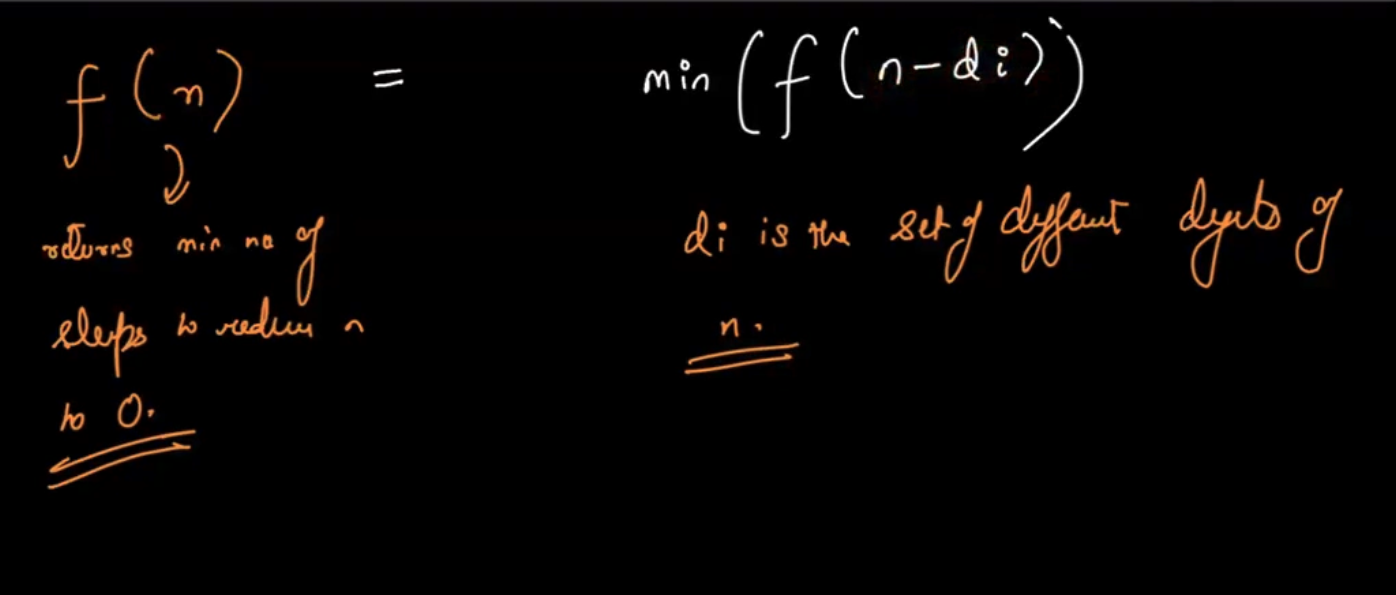 f(n) = min(f(n-di))
returns min no of
steps to reduce n
to 0.
di is the set of different digits of
n.